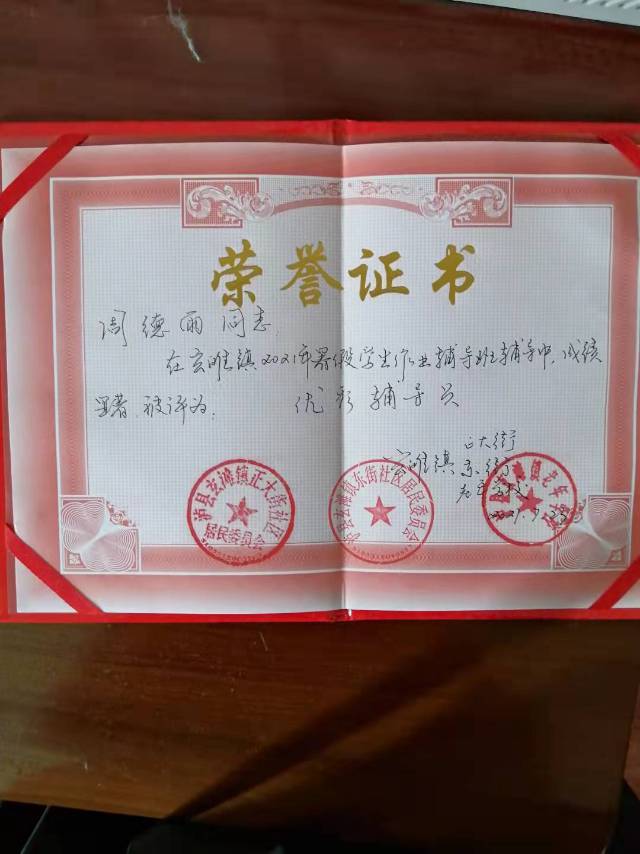 荣誉证书
周德丽同志:
在玄滩镇2021年暑假学生作业辅导班辅导中,成绩
显著,被评为: 优秀辅导员
正大街
玄滩镇 东街
2021.7.
泸县玄滩镇正大街社区
居民委员会
泸县玄滩镇东街社区居民委员会
滩镇老年